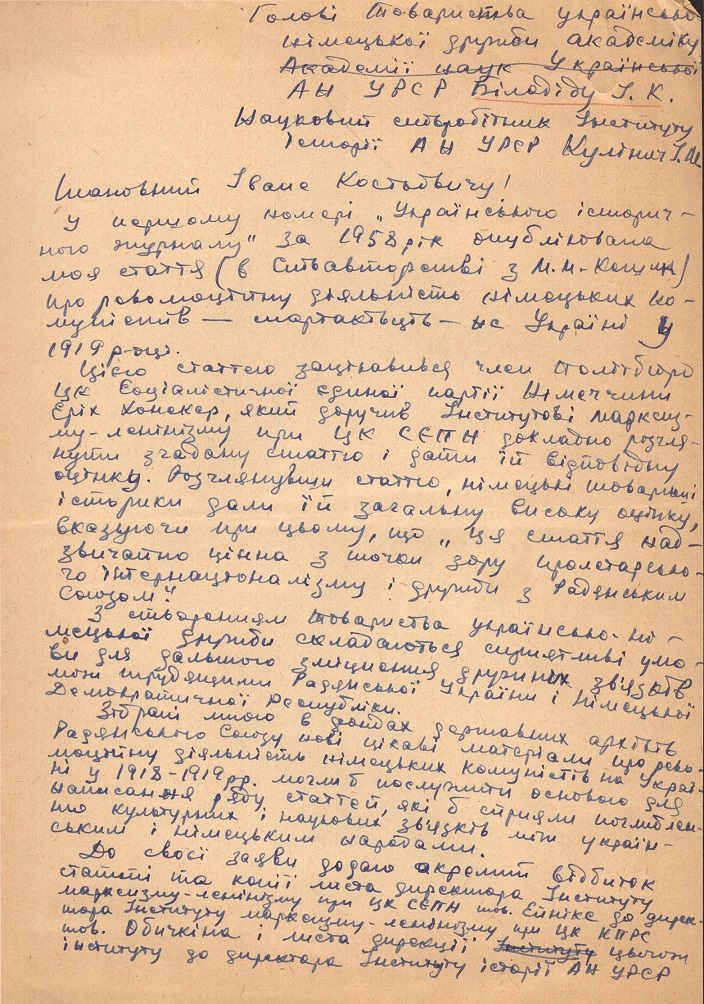 Голові Товариства українсько
німецької дружби академіку
Академії наук Української
АН УРСР Білодіду І. К.
Науковий співробітник Інституту
історії АН УРСР Кулінич І. М.
Шановний Іване Костьовичу!
У першому номері „Українського історич-
ного журналу" за 1958 рік опублікована
моя стаття (в співавторстві з М. М. Кошик)
про революційну діяльність німецьких ко-
муністів — спартаківців — на Україні у
1919 році.
Цією статтею зацікавився член Політбюро
ЦК Соціалістичної єдиної партії Німеччини
Еріх Хонекер, який доручив Інститутові марксиз-
му-ленінізму при ЦК СЄПН докладно розгля-
нути згадану статтю і дати їй відповідну
оцінку. Розглянувши статтю, німецькі товариші
історики дали їй загальну високу оцінку,
вказуючи при цьому, що „ця стаття над-
звичайно цінна з точки зору пролетарсько-
го інтернаціоналізму і дружби з Радянським
Союзом".
З створенням Товариства українсько-ні-
мецької дружби складаються сприятливі умо-
ви для дальшого зміцнення дружніх зв'язків
між трудящими Радянської України і Німецької
Демократичної Республіки.
Зібрані мною в фондах державних архівів
Радянського Союзу нові цікаві матеріали про рево-
люційну діяльність німецьких комуністів на Украї-
ні у 1918-1919 рр. могли б послужити основою для
написання ряду статтей, які б сприяли поглиблен-
ню культурних і наукових зв'язків між україн-
ським і німецьким народами.
До своєї заяви додаю окремий відбиток
статті та копії листа директора Інституту
марксизму-ленінізму при ЦК СЄПН тов. Ейніке до дирек-
тора Інституту марксизму-ленінізму при ЦК КПРС
тов. Обичкіна і листа дирекції Інституту цього
інституту до директора Інституту історії АН УРСР